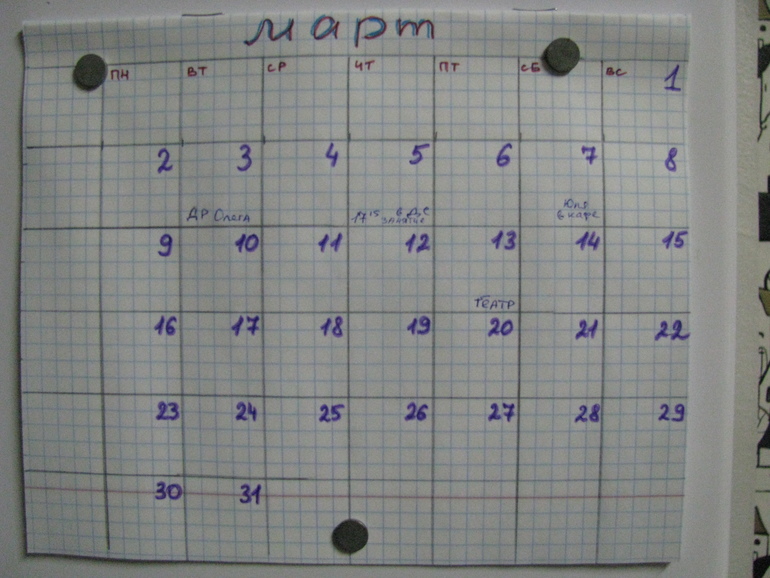 март
ПН ВТ СР ЧТ ПТ СБ ВС 1
2 3 4 5 6 7 8
ДР Олега 17 15 в Д/С занятие Юля в кафе
9 10 11 12 13 14 15
ТЕАТР
16 17 18 19 20 21 22
23 24 25 26 27 28 29
30 31